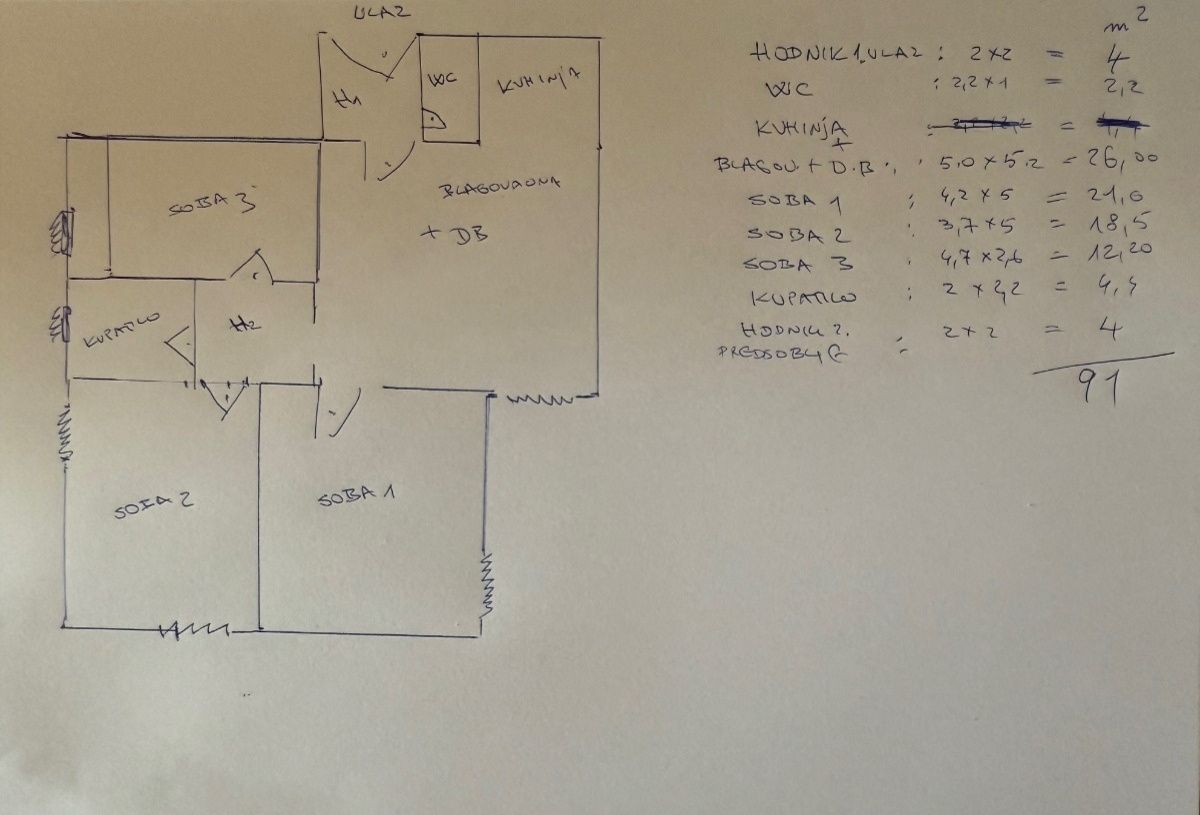 ULAZ
H1
WC
KUHINJA
SOBA 3
BLAGOVAONA
+ DB
KUPATILO
H2
SOBA 2
SOBA 1
m²
HODNIK 1. ULAZ : 2 x 2 = 4
WC : 2,2 x 1 = 2,2
KUHINJA : =
+
BLAGOV. + D.B : 5,0 x 5,2 = 26,00
SOBA 1 : 4,2 x 5 = 21,0
SOBA 2 : 3,7 x 5 = 18,5
SOBA 3 : 4,7 x 2,6 = 12,20
KUPATILO : 2 x 2,2 = 4,4
HODNIK 2. : 2 x 2 = 4
91